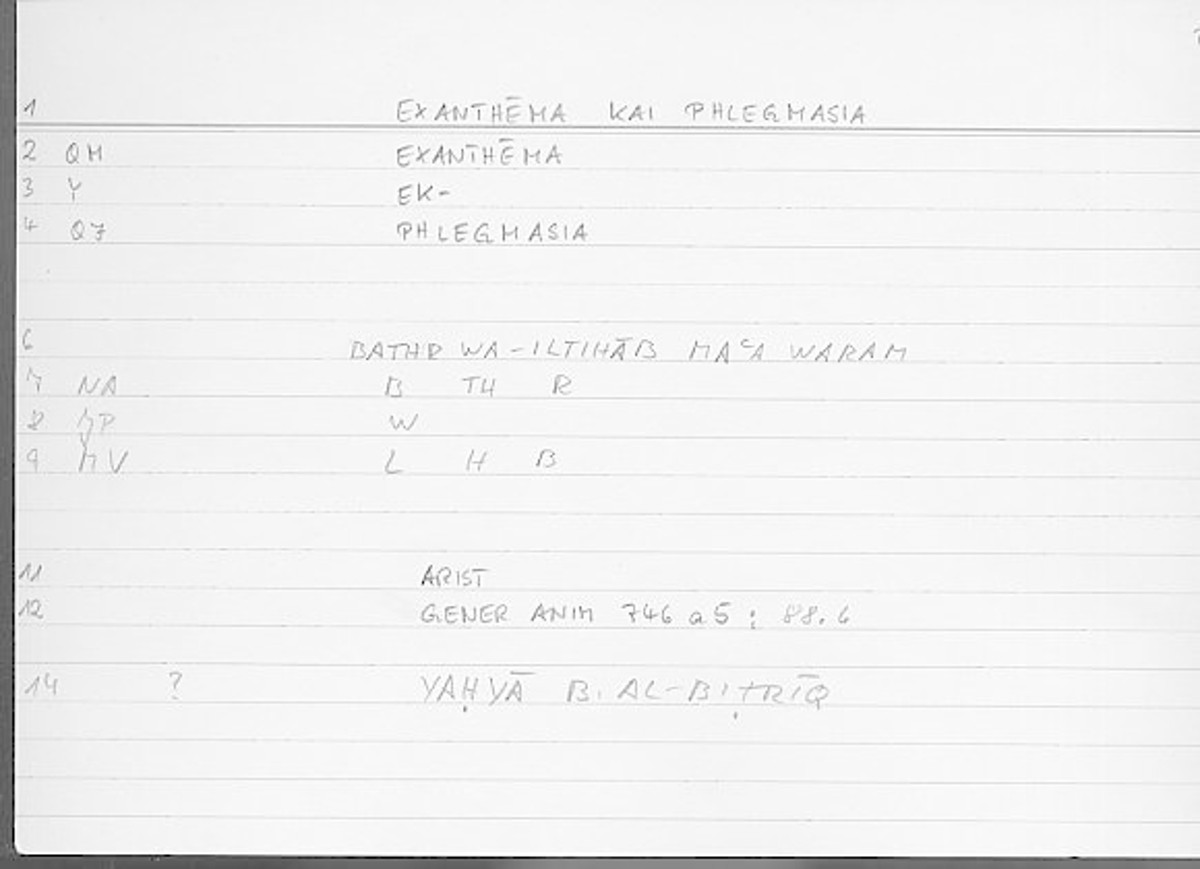 1 EXANTHĒMA KAI PHLEGMASIA
2 QM EXANTHĒMA
3 Y EK-
4 QJ PHLEGMASIA
6 BATHR WA-ILTIHĀB MAʿA WARAM
7 NA B TH R
8 W
9 L H B
11 ARIST
12 GENER ANIM 746 a 5 ; 88.6
14 ? YAḤYĀ B. AL-BIṬRĪQ